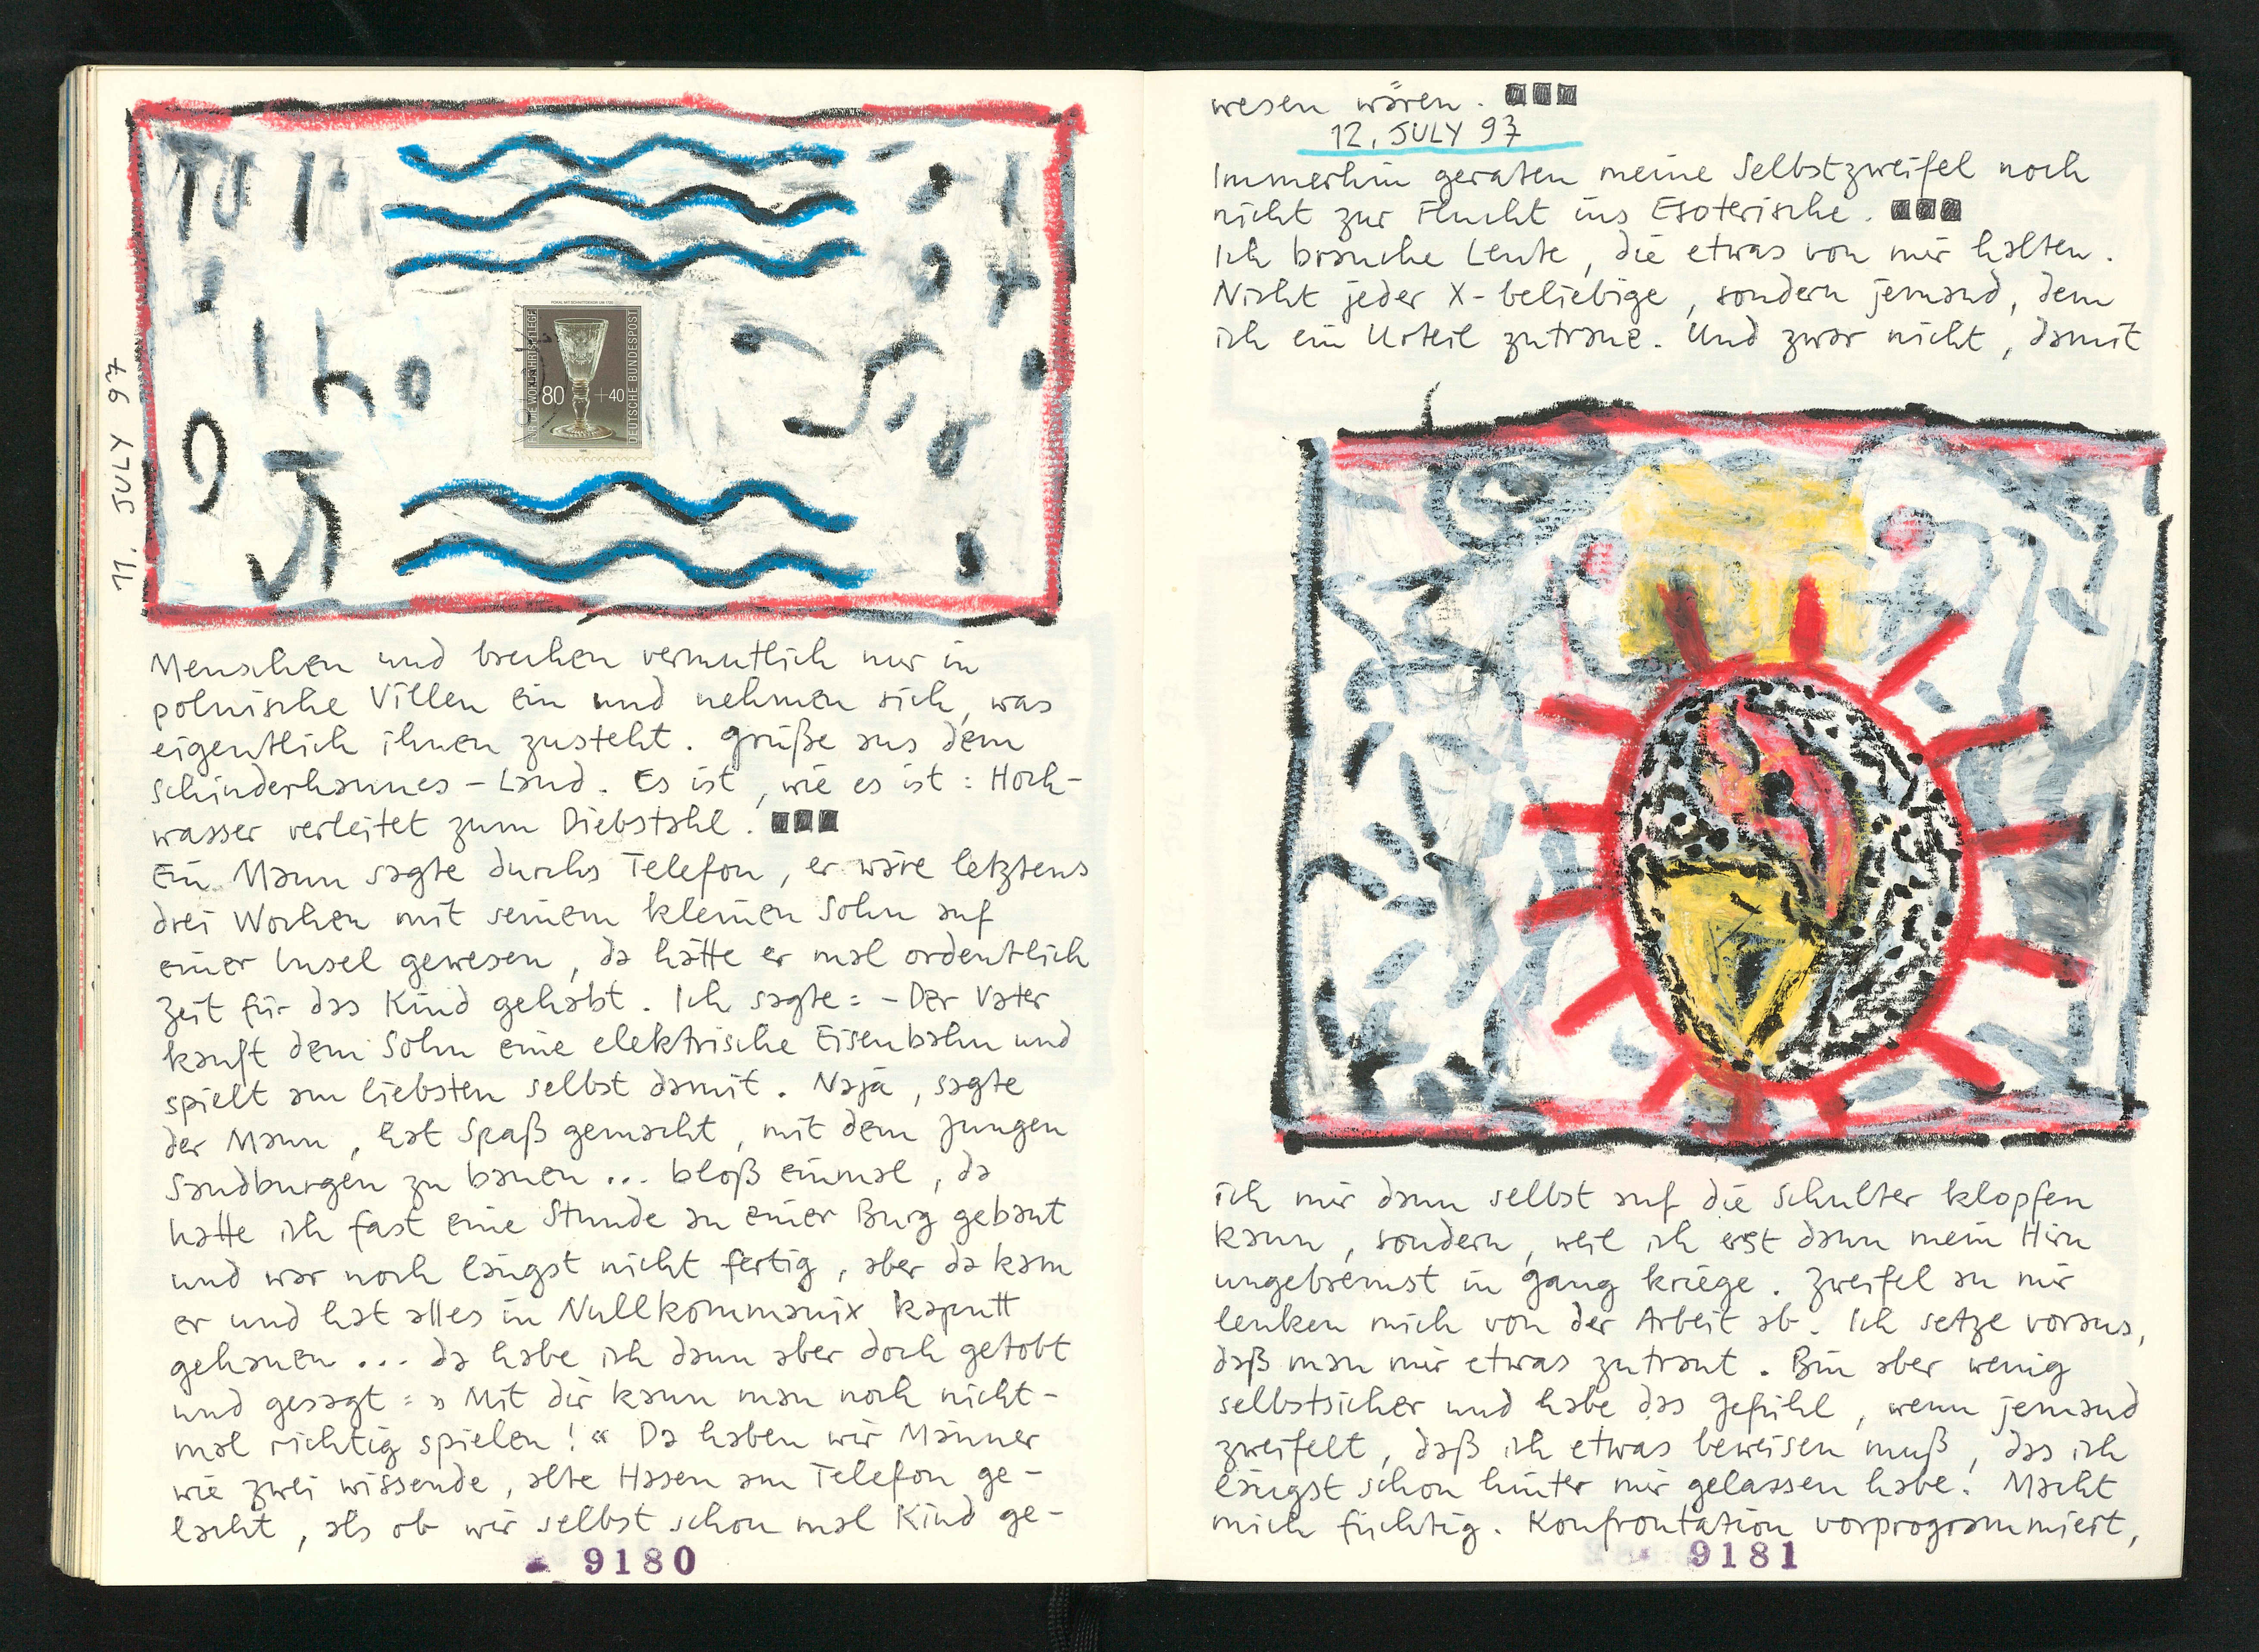 11. JULY 97
POKAL MIT SCHNITTDEKOR UM 1720
FÜR DIE WOHLFAHRTSPFLEGE
80 +40
DEUTSCHE BUNDESPOST
Menschen und brechen vermutlich nur in
polnische Villen ein und nehmen sich, was
eigentlich ihnen zusteht. Grüße aus dem
Schinderhannes-Land. Es ist, wie es ist: Hoch-
wasser verleitet zum Diebstahl.
Ein Mann sagte durchs Telefon, er wäre letztens
drei Wochen mit seinem kleinen Sohn auf
einer Insel gewesen, da hätte er mal ordentlich
Zeit für das Kind gehabt. Ich sagte: – Der Vater
kauft dem Sohn eine elektrische Eisenbahn und
spielt am liebsten selbst damit. Naja, sagte
der Mann, hat Spaß gemacht, mit dem Jungen
Sandburgen zu bauen ... bloß einmal, da
hatte ich fast eine Stunde an einer Burg gebaut
und war noch längst nicht fertig, aber da kam
er und hat alles in Nullkommanix kaputt
gehauen ... da habe ich dann aber doch getobt
und gesagt: » Mit dir kann man noch nicht-
mal richtig spielen! « Da haben wir Männer
wie zwei wissende, alte Hasen am Telefon ge-
lacht, als ob wir selbst schon mal Kind ge-
9180
wesen wären.
12. JULY 97
Immerhin geraten meine Selbstzweifel noch
nicht zur Flucht ins Esoterische.
Ich brauche Leute, die etwas von mir halten.
Nicht jeder X-beliebige, sondern jemand, dem
ich ein Urteil zutraue. Und zwar nicht, damit
ich mir dann selbst auf die Schulter klopfen
kann, sondern, weil ich erst dann mein Hirn
ungebremst in Gang kriege. Zweifel an mir
lenken mich von der Arbeit ab. Ich setze voraus,
daß man mir etwas zutraut. Bin aber wenig
selbstsicher und habe das Gefühl, wenn jemand
zweifelt, daß ich etwas beweisen muß, das ich
längst schon hinter mir gelassen habe. Macht
mich füchtig. Konfrontation vorprogrammiert,
9181